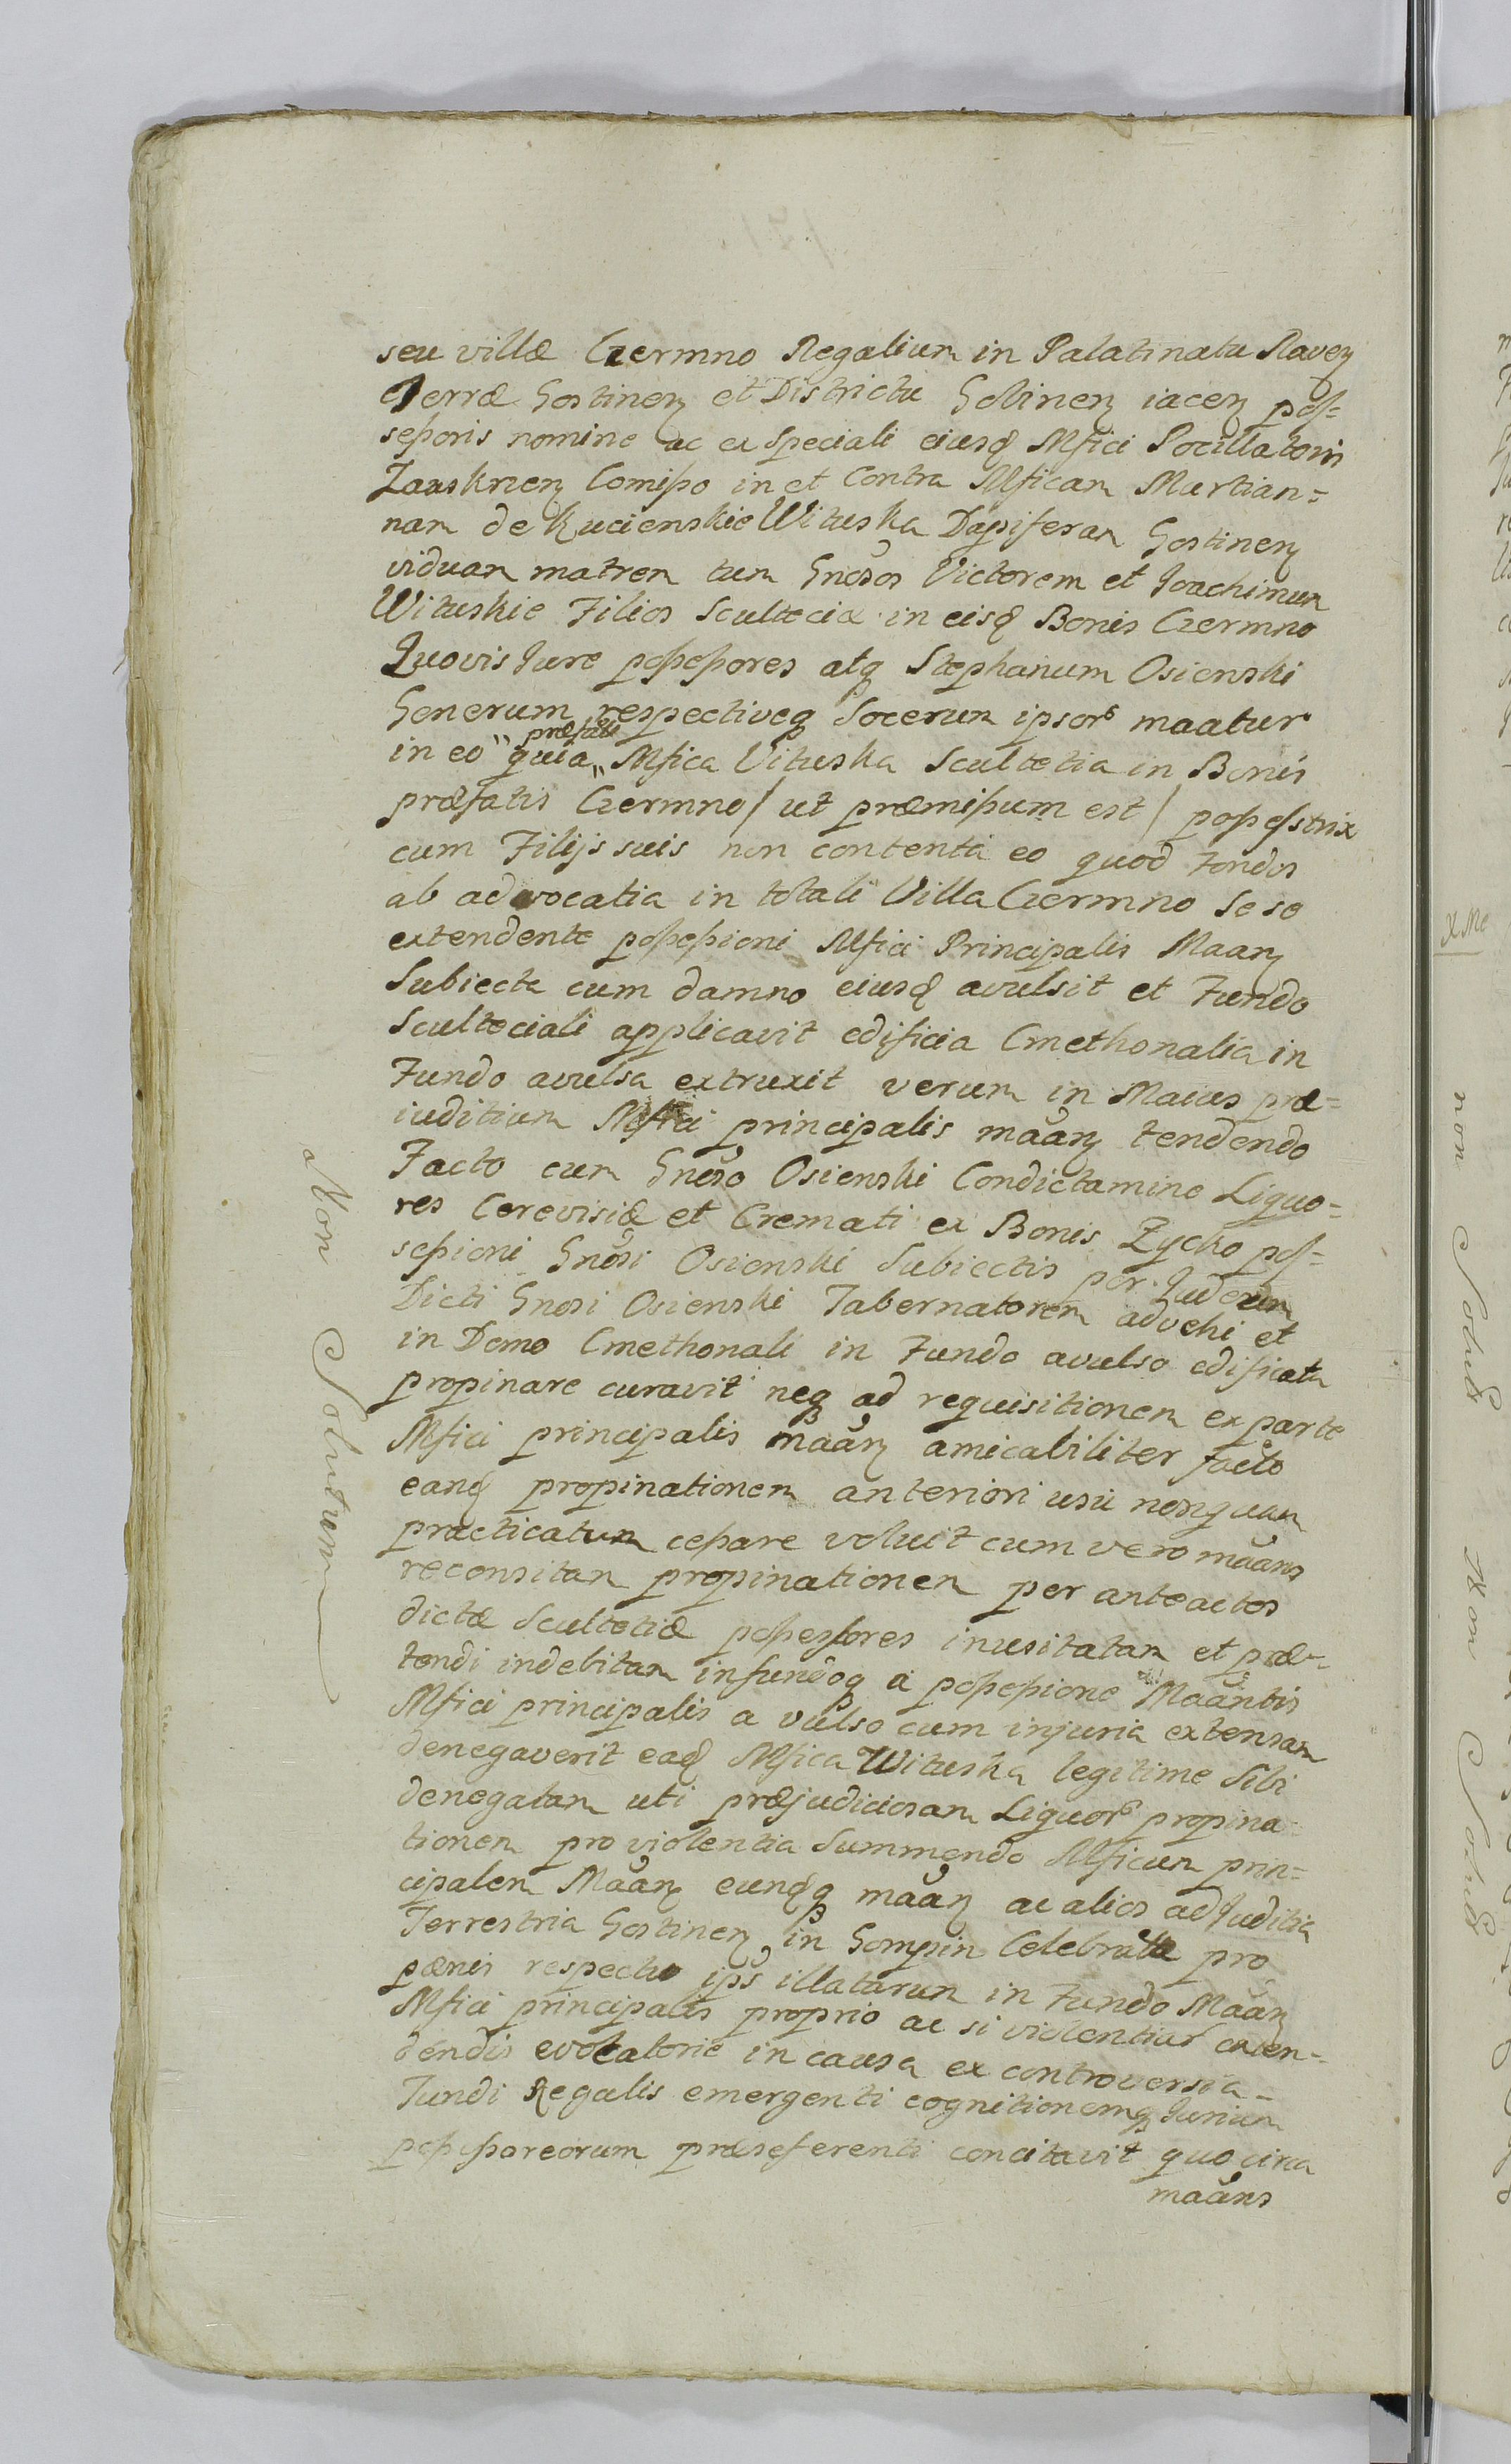 seu villæ Czermno Regalium in Palatinatu Raven
Terræ Gostinen et Districtu Gąbinen iacen pos=
sessoris nomine ac ex speciali eiusd Mfici Pocillatoris
Zaaskrzen Comisso in et Contra Mficam Martian=
nam de Kucienskie Wituska Dapiferam Gostinen
viduam matrem tum Gnosos Victorem et Joachimum
Wituskie Filios Scultecia in eisd Bonis Czermno
Quovis Jure possessores atq Stephanum Osienski
Generum respectiveq Socerum ipsor maatur
in eo quia præfata Mfica Vituska Scultetia in Bonis
præfatis Czermno / ut præmissum est / possestrix
cum Filijs suis non contenta eo quod Fondos
ab advocatia in totali Villa Czermno se se
extendente possessioni Mfici Principalis Maan
Subiecta cum damno eiusd avulsit et Fundo
Sculteciali applicavit edificia Cmethonalia in
Fundo avulsa extruxit verum in Maius præ=
iuditium Mfici principalis maan tendendo
Facto cum Gnoso Osienski Condictamine Liquo=
res Cerevisiæ et Cremati ex Bonis Zycko pos=
sessioni Gnosi Osienski Subiectis per Judæum
Dicti Gnosi Osienski Tabernatorem advehi et
in Domo Cmethonali in Fundo avulso edificata
propinare curavit neq ad requisitionem ex parte
Mfici principalis maan amicabiliter facto
eand propinationem anteriori usu nonquam
practicatum cessare voluit cum vero maans
reconsitam propinationem per anteactos
dictæ Scultetiæ possessores inusitatam et præ=
tendi indebitam infundoq a possessione Maantis
Mfici principalis a vulso cum injuria extensam
denegaverit ead Mfica Wituska legitime Sibi
denegatam uti præjudiciosam Liquor propina
tionem pro violentia Summendo Mficum prin=
cipalem Maan eundq maan ac alios ad Juditia
Terrestria Gostinen in Gompin Celebrata pro
pænis respectu ips illatarum in Fundo Maan
Mfici principalis proprio ac si violentias
dendis evocatorie in causa ex controversia=
Fundi Regalis emergenti cognitionemq Jurium
possessoreorum præseferenti concitavit quo circa
maans
Non Solutum